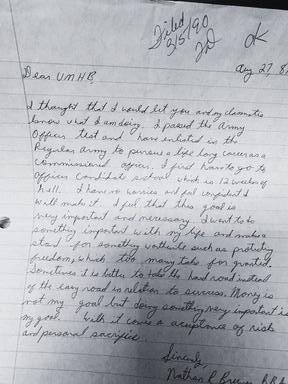 Filed
3/5/90
OK
Aug 27, 8
Dear UNHB,
I thought that I would let you and my classmates
know what I am doing. I passed the Army
Officer test and have enlisted in the
Regular Army to persue a life long career as a
commissioned officer. I first have to go to
Officer Candidate School which is 12 weeks of
hell. I have no worries and feel confident I
will make it. I feel that this goal is
very important and necessary. I want to do
something important with my life and make a
stand for something worthwile such as protecting
freedom, which too many take for granted.
Sometimes it is better to take the hard road instead
of the easy road in relation to success. Money is
not my goal but doing something very important is
my goal. With it comes a acceptance of risk
and personal sacrifice.
Sincerely,
Nathan R Brewer